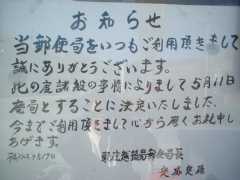 お知らせ
当郵便局をいつもご利用頂きまして
誠にありがとうございます。
此の度諸般の事情によりまして5月11日
廃局とすることに決定いたしました。
今までご利用頂きまして心から厚くお礼申し
あげます。
郵便局長